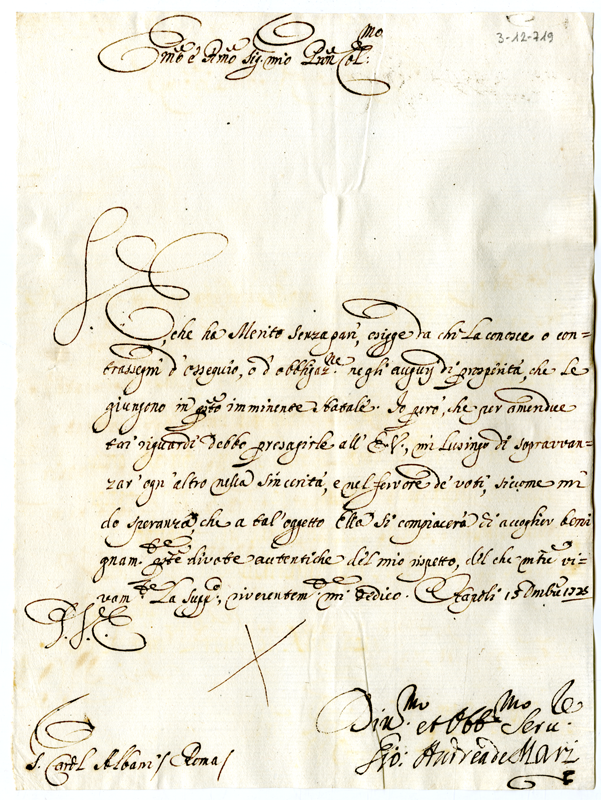 3-12-719
Em̃o e Rm̃o Sig. mio Prñ Col:mo
S. E.
, che ha Merito senza pari, esigge da chi La conosce o con=
trassegni d'ossequio, o d'obbligaz.ne negli augurij di prosperità, che Le
giungono in q̃sto imminente Natale. Io però, che per amendue
tai riguardi debbo presagirle all' E.V., mi lusingo di sopravvan=
zar' ogn' altro nella sincerità, e nel fervore de' voti, siccome mi
dò speranza, che a tal' oggetto Ella si compiacerà di accoglier beni
gnam.te q̃ste divote autentiche del mio rispetto, del che m̃tre vi=
vam.te La supp.o, riverentem.te mi dedico. Napoli 15 Xmbre 1725
D. S. E.
Div.mo et Obb.mo Ser.re
Gio: Andrea de Mari
S. Card.l Albani / Roma /